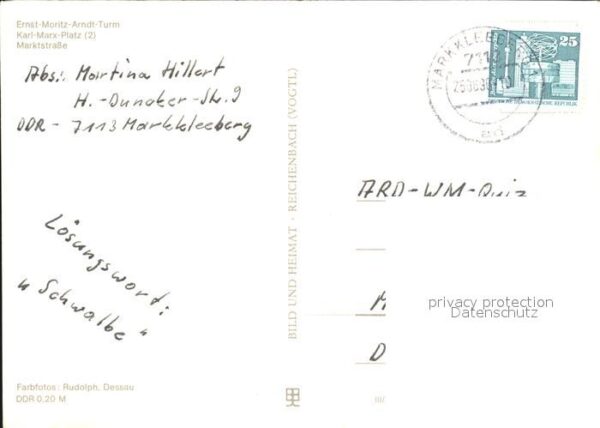 Ernst-Moritz-Arndt-Turm
Karl-Marx-Platz (2)
Marktstraße
Abs.: Martina Hillert
H.-Duncker-Str. 9
DDR - 7113 Markkleeberg
Lösungswort:
„Schwalbe“
Farbfotos: Rudolph, Dessau
DDR 0,20 M
BILD UND HEIMAT · REICHENBACH (VOGTL)
MARKKLEEBERG
7113
ad
25
DEUTSCHE DEMOKRATISCHE REPUBLIK
ARD-WM-Quiz
M
D
privacy protection
Datenschutz
III/